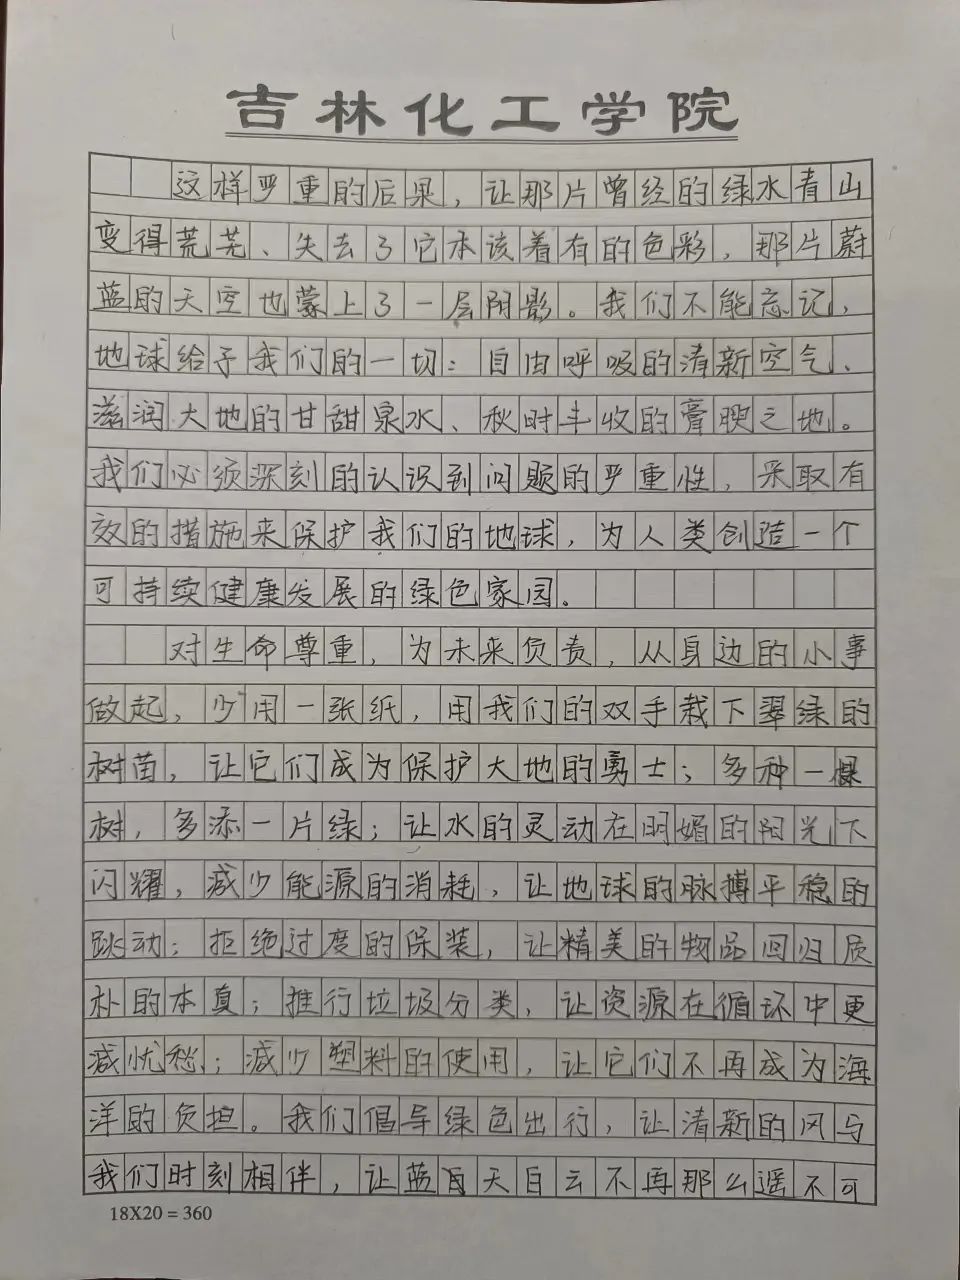 吉林化工学院
这样严重的后果，让那片曾经的绿水青山
变得荒芜、失去了它本该着有的色彩，那片蔚
蓝的天空也蒙上了一层阴影。我们不能忘记，
地球给予我们的一切：自由呼吸的清新空气、
滋润大地的甘甜泉水、秋时丰收的膏腴之地。
我们必须深刻的认识到问题的严重性，采取有
效的措施来保护我们的地球，为人类创造一个
可持续健康发展的绿色家园。
对生命尊重，为未来负责，从身边的小事
做起，少用一张纸，用我们的双手栽下翠绿的
树苗，让它们成为保护大地的勇士；多种一棵
树，多添一片绿；让水的灵动在明媚的阳光下
闪耀，减少能源的消耗，让地球的脉搏平稳的
跳动；拒绝过度的保装，让精美的物品回归质
朴的本真；推行垃圾分类，让资源在循环中更
减忧愁；减少塑料的使用，让它们不再成为海
洋的负担。我们倡导绿色出行，让清新的风与
我们时刻相伴，让蓝天白云不再那么遥不可
18X20=360